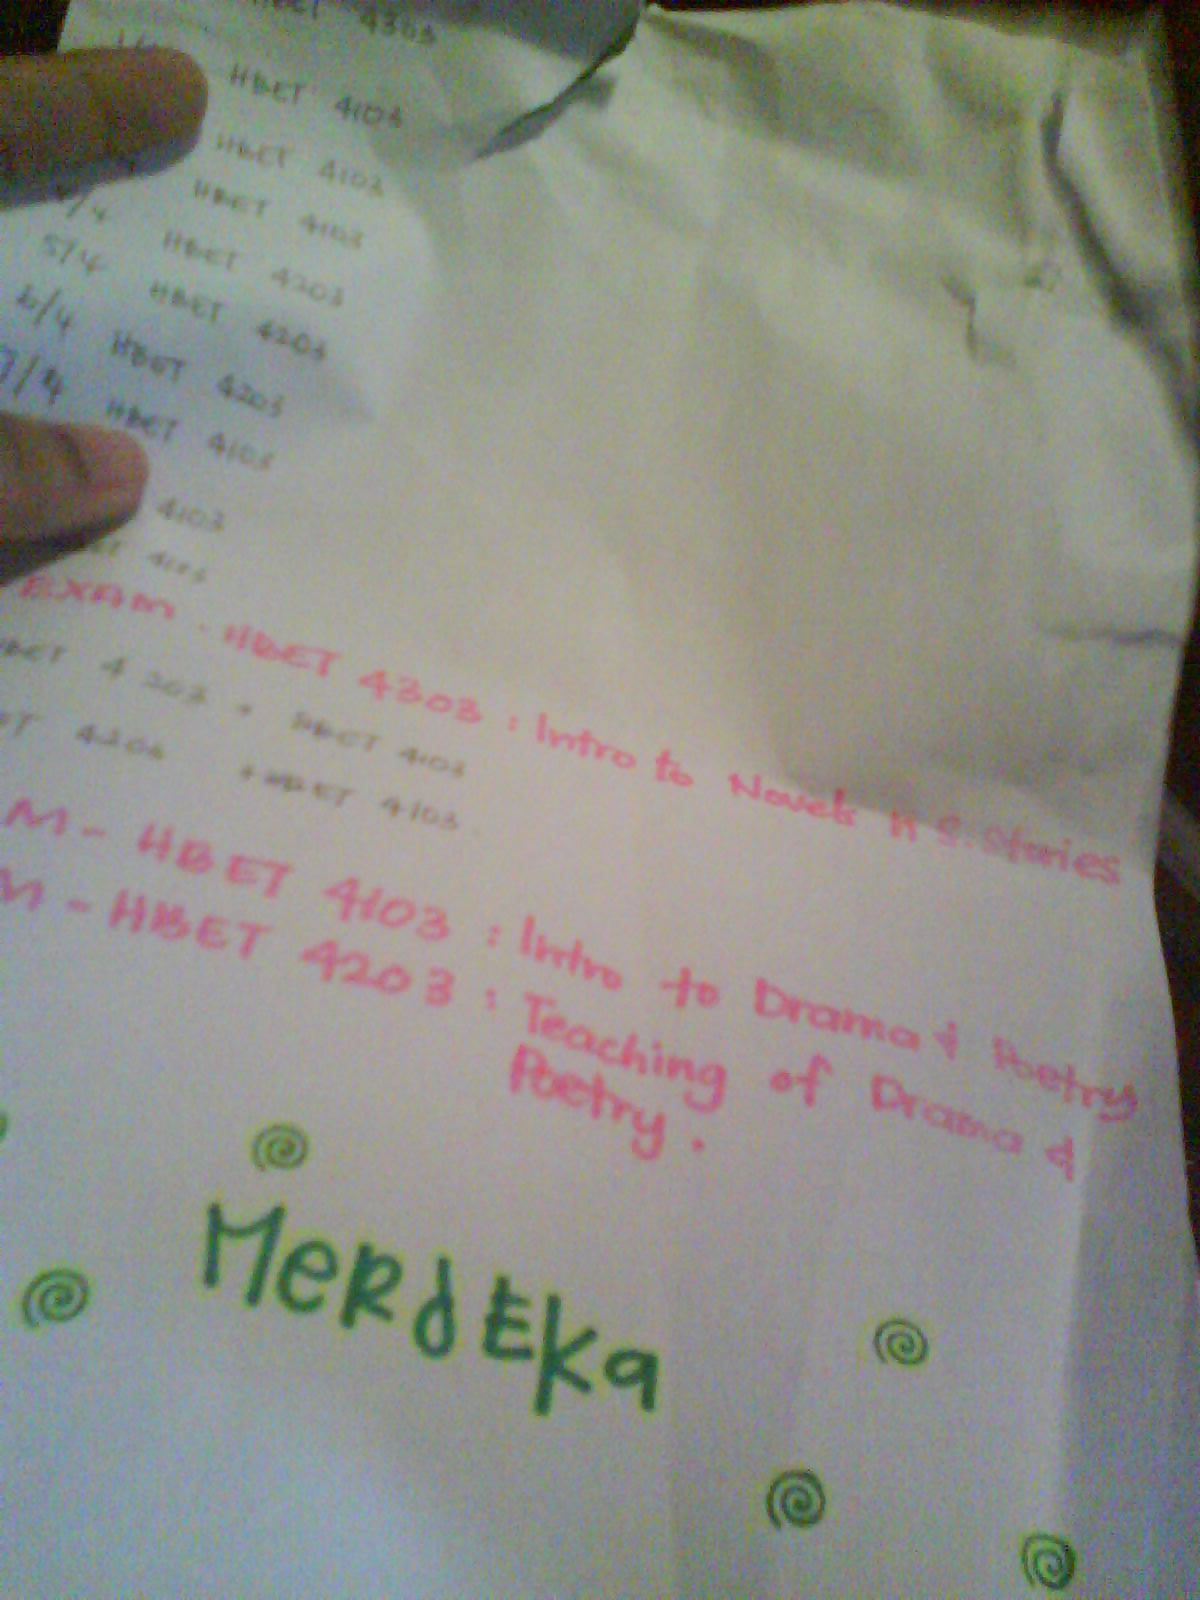 HBET 4303
HBET 4103
HBET 4103
HBET 4103
/4 HBET 4203
5/4 HBET 4203
6/4 HBET 4203
7/4 HBET 4103
4103
4103
EXAM - HBET 4303 : Intro to Novels n S. Stories
HBET 4203 + HBET 4103
ET 4203 + HBET 4103.
M - HBET 4103 : Intro to Drama & Poetry
M - HBET 4203 : Teaching of Drama &
Poetry.
MerdEka